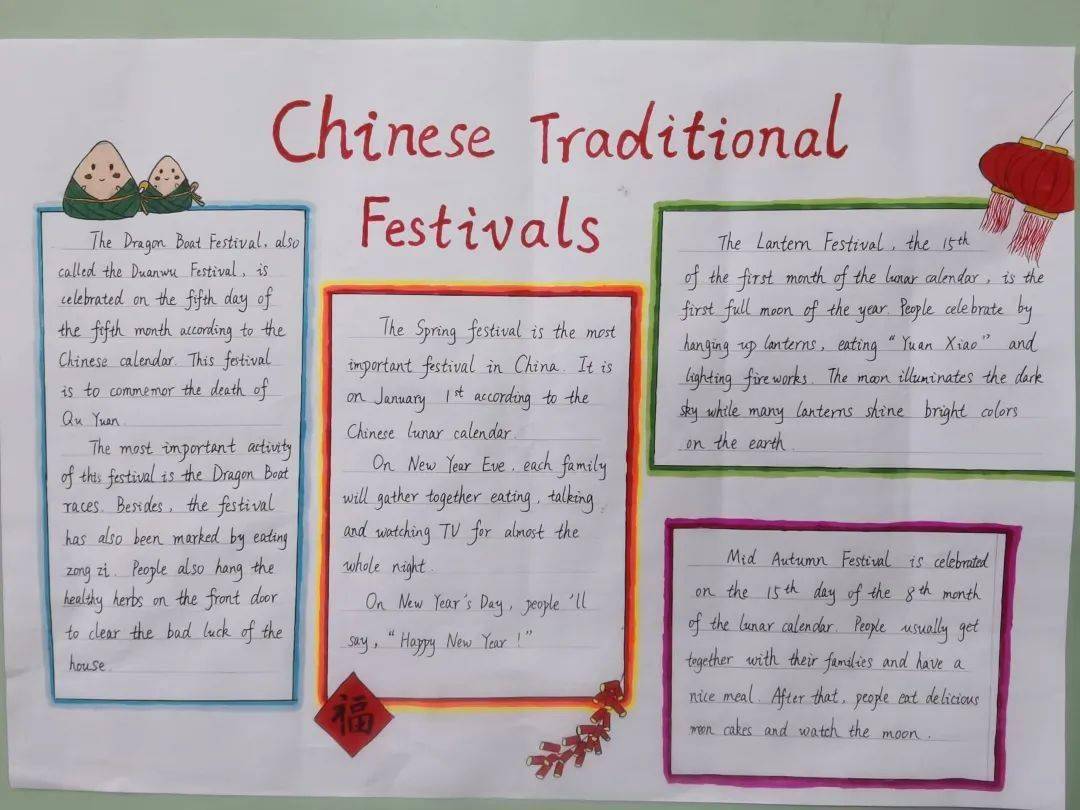 Chinese Traditional
Festivals
The Dragon Boat Festival, also
called the Duanwu Festival, is
celebrated on the fifth day of
the fifth month according to the
Chinese calendar. This festival
is to commemor the death of
Qu Yuan.
The most important activity
of this festival is the Dragon Boat
races. Besides, the festival
has also been marked by eating
zong zi. People also hang the
healthy herbs on the front door
to clear the bad luck of the
house.
The Spring festival is the most
important festival in China. It is
on January 1st according to the
Chinese lunar calendar.
On New Year Eve, each family
will gather together eating, talking
and watching TV for almost the
whole night.
On New Year's Day, people 'll
say, "Happy New Year !"
福
The Lantern Festival, the 15th
of the first month of the lunar calendar, is the
first full moon of the year. People celebrate by
hanging up lanterns, eating "Yuan Xiao" and
lighting fireworks. The moon illuminates the dark
sky while many lanterns shine bright colors
on the earth.
Mid Autumn Festival is celebrated
on the 15th day of the 8th month
of the lunar calendar. People usually get
together with their families and have a
nice meal. After that, people eat delicious
moon cakes and watch the moon.